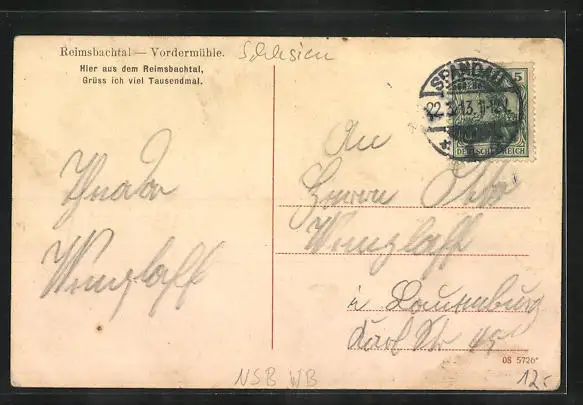 Reimsbachtal — Vordermühle.
Hier aus dem Reimsbachtal,
Grüss ich viel Tausendmal.
Schlesien
SPANDAU
22.3.13.11-12V.
5
DEUTSCHES REICH
An
Herrn Otto
Wenzlaff
in Lauenburg
Karl Str 45
Wenzlaff
08 5726*
NSB WB
12.-